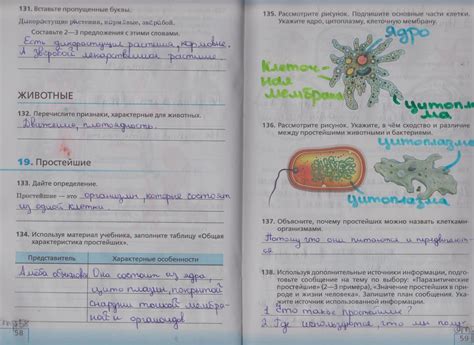 131. Вставьте пропущенные буквы.
Дикорастущие растения, кормовые, зверобой.
Составьте 2—3 предложения с этими словами.
Есть дикорастущие растения, кормовые.
А зверобой лекарственное растение.
ЖИВОТНЫЕ
132. Перечислите признаки, характерные для животных.
Движение, плотоядность.
19. Простейшие
133. Дайте определение.
Простейшие — это организмы, которые состоят
из одной клетки.
134. Используя материал учебника, заполните таблицу «Общая
характеристика простейших».
Представитель Характерные особенности
Амёба обыкновен. Она состоит из ядра,
цитоплазмы, покрытой
снаружи тонкой мембра-
ной и органоидов
58
135. Рассмотрите рисунок. Подпишите основные части клетки.
Укажите ядро, цитоплазму, клеточную мембрану.
Ядро
Клеточ-
ная
мембрана
Цитоплаз
ма
136. Рассмотрите рисунок. Укажите, в чём сходство и различие
между простейшими животными и бактериями.
цитоплазма
цитоплазма
137. Объясните, почему простейших можно назвать клетками-
организмами.
Потому что они питаются и передвигаются
138. Используя дополнительные источники информации, подго-
товьте сообщение на тему по выбору: «Паразитические
простейшие» (2—3 примера), «Значение простейших в приро-
де и жизни человека». Запишите план сообщения. Укажите
источник использованной информации.
1 Что такое простейшие?
2. Где используются, что мы полу-
59